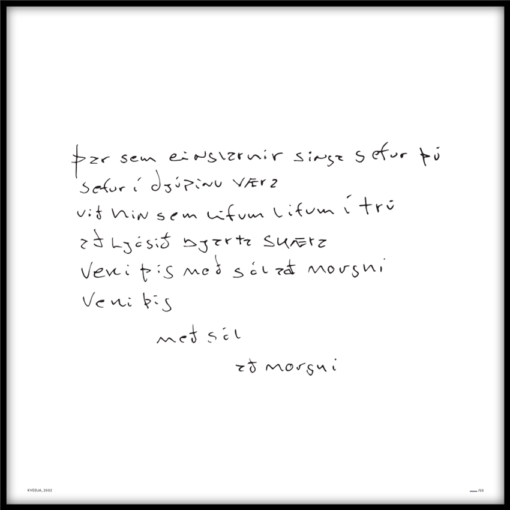 þar sem einglarnir singa sefur þú
sefur í djúpinu væra
við hin sem lifum lifum í trú
að ljósið bjarta skæra
veki þig með sól að morgni
veki þig
með sól
að morgni
KVEÐJA, 2002
/50